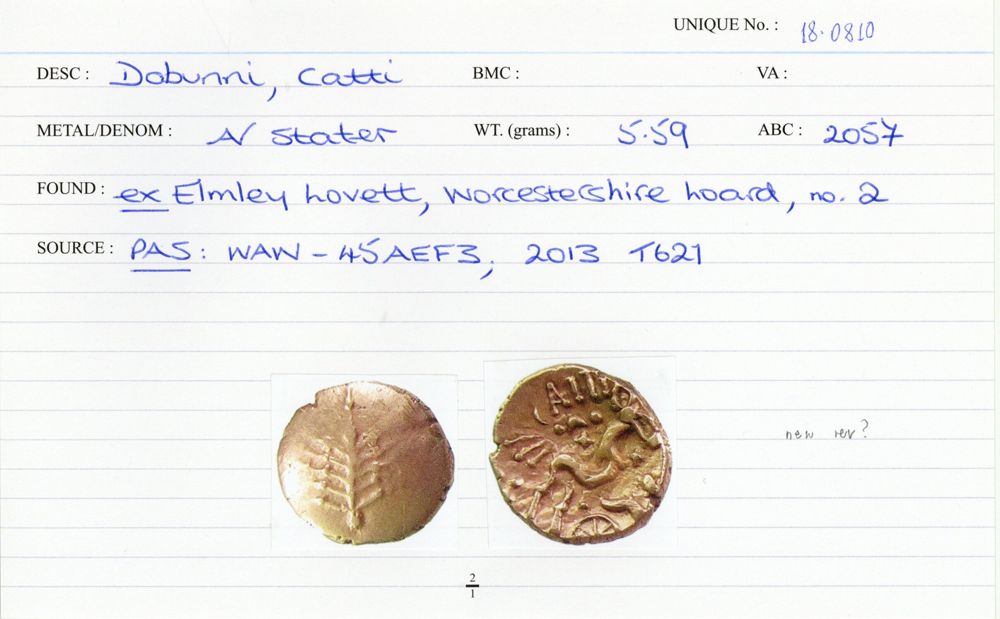 UNIQUE No. : 18.0810
DESC : Dobunni, Catti BMC : VA :
METAL/DENOM : AV Stater WT. (grams) : 5.59 ABC : 2057
FOUND : ex Elmley Lovett, Worcestershire hoard, no. 2
SOURCE : PAS : WAW - 45AEF3, 2013 T621
new rev?
2
1